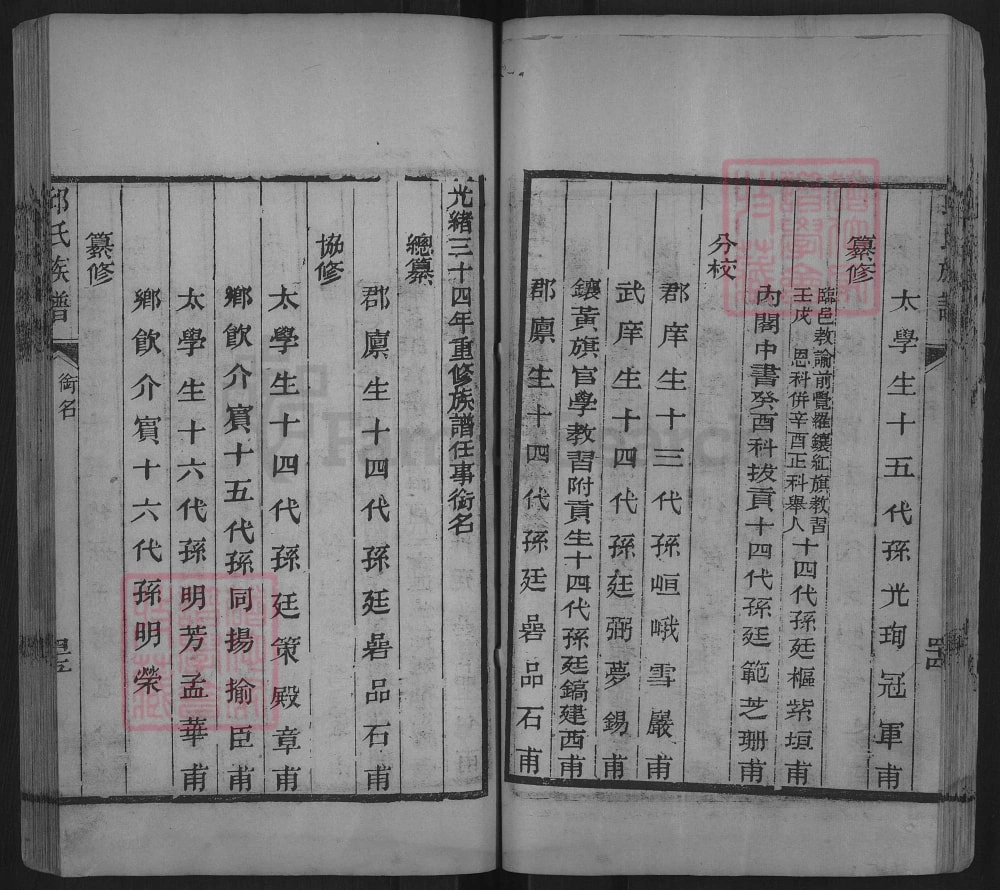 太學生十五代孫光珣冠軍甫
纂修
臨邑教諭前覺羅鑲紅旗教習
壬戌 恩科併辛酉正科舉人
十四代孫廷樞紫垣甫
內閣中書癸酉科拔貢十四代孫廷範芝珊甫
分校
郡庠生十三代孫峘峨雪巖甫
武庠生十四代孫廷弼夢錫甫
鑲黃旗官學教習附貢生十四代孫廷鎬建西甫
郡廩生十四代孫廷嵒品石甫
光緒三十四年重修族譜任事銜名
總纂
郡廩生十四代孫廷嵒品石甫
協修
太學生十四代孫廷策殿章甫
鄉飲介賓十五代孫同揚揄臣甫
太學生十六代孫明芳孟華甫
鄉飲介賓十六代孫明榮
纂修
邱氏族譜
銜名
FamilySearch